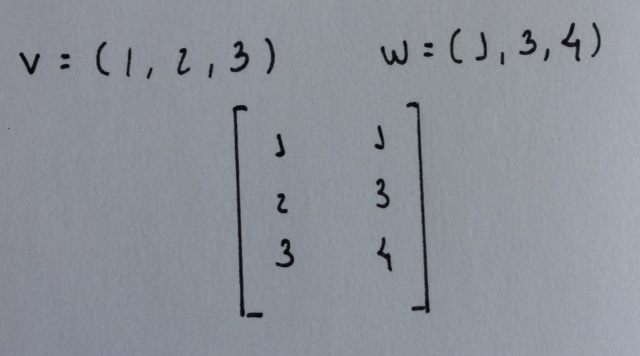 v = (1, 2, 3) w = (1, 3, 4)
1 1
2 3
3 4